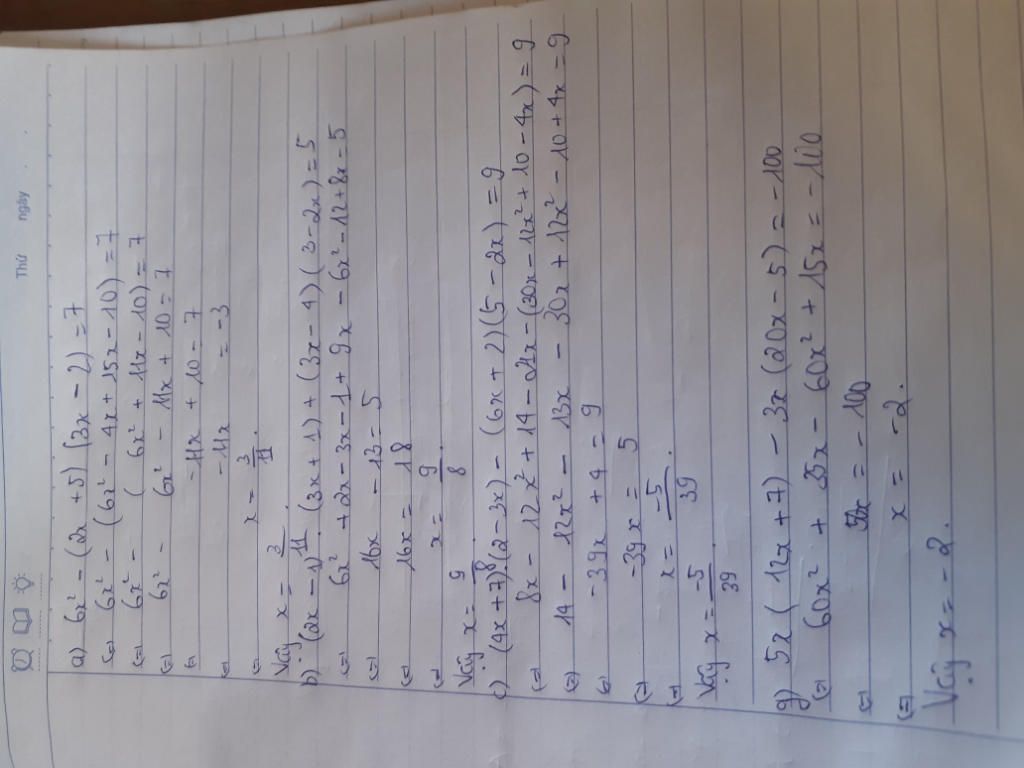 Thứ
ngày
a) 6x² - (2x + 5) (3x - 2) = 7
(=) 6x² - (6x² - 4x + 15x - 10) = 7
(=) 6x² - ( 6x² + 11x - 10) = 7
(=) 6x² - 6x² - 11x + 10 = 7
(=) - 11x + 10 = 7
(=) - 11x = -3
(=) x = 3/11
Vậy x = 3/11.
b) (2x - 1) . (3x + 1) + (3x - 4) (3 - 2x) = 5
(=) 6x² + 2x - 3x - 1 + 9x - 6x² - 12 + 8x = 5
(=) 16x - 13 = 5
(=) 16x = 18
(=) x = 9/8.
Vậy x = 9/8.
c) (4x + 7) (2 - 3x) - (6x + 2) (5 - 2x) = 9
(=) 8x - 12x² + 14 - 21x - (30x - 12x² + 10 - 4x) = 9
(=) 14 - 12x² - 13x - 30x + 12x² - 10 + 4x = 9
(=) - 39x + 4 = 9
(=) - 39x = 5
(=) x = -5/39.
Vậy x = -5/39.
g) 5x ( 12x + 7) - 3x (20x - 5) = - 100
(=) 60x² + 35x - 60x² + 15x = - 100
(=) 50x = - 100
(=) x = - 2.
Vậy x = - 2.